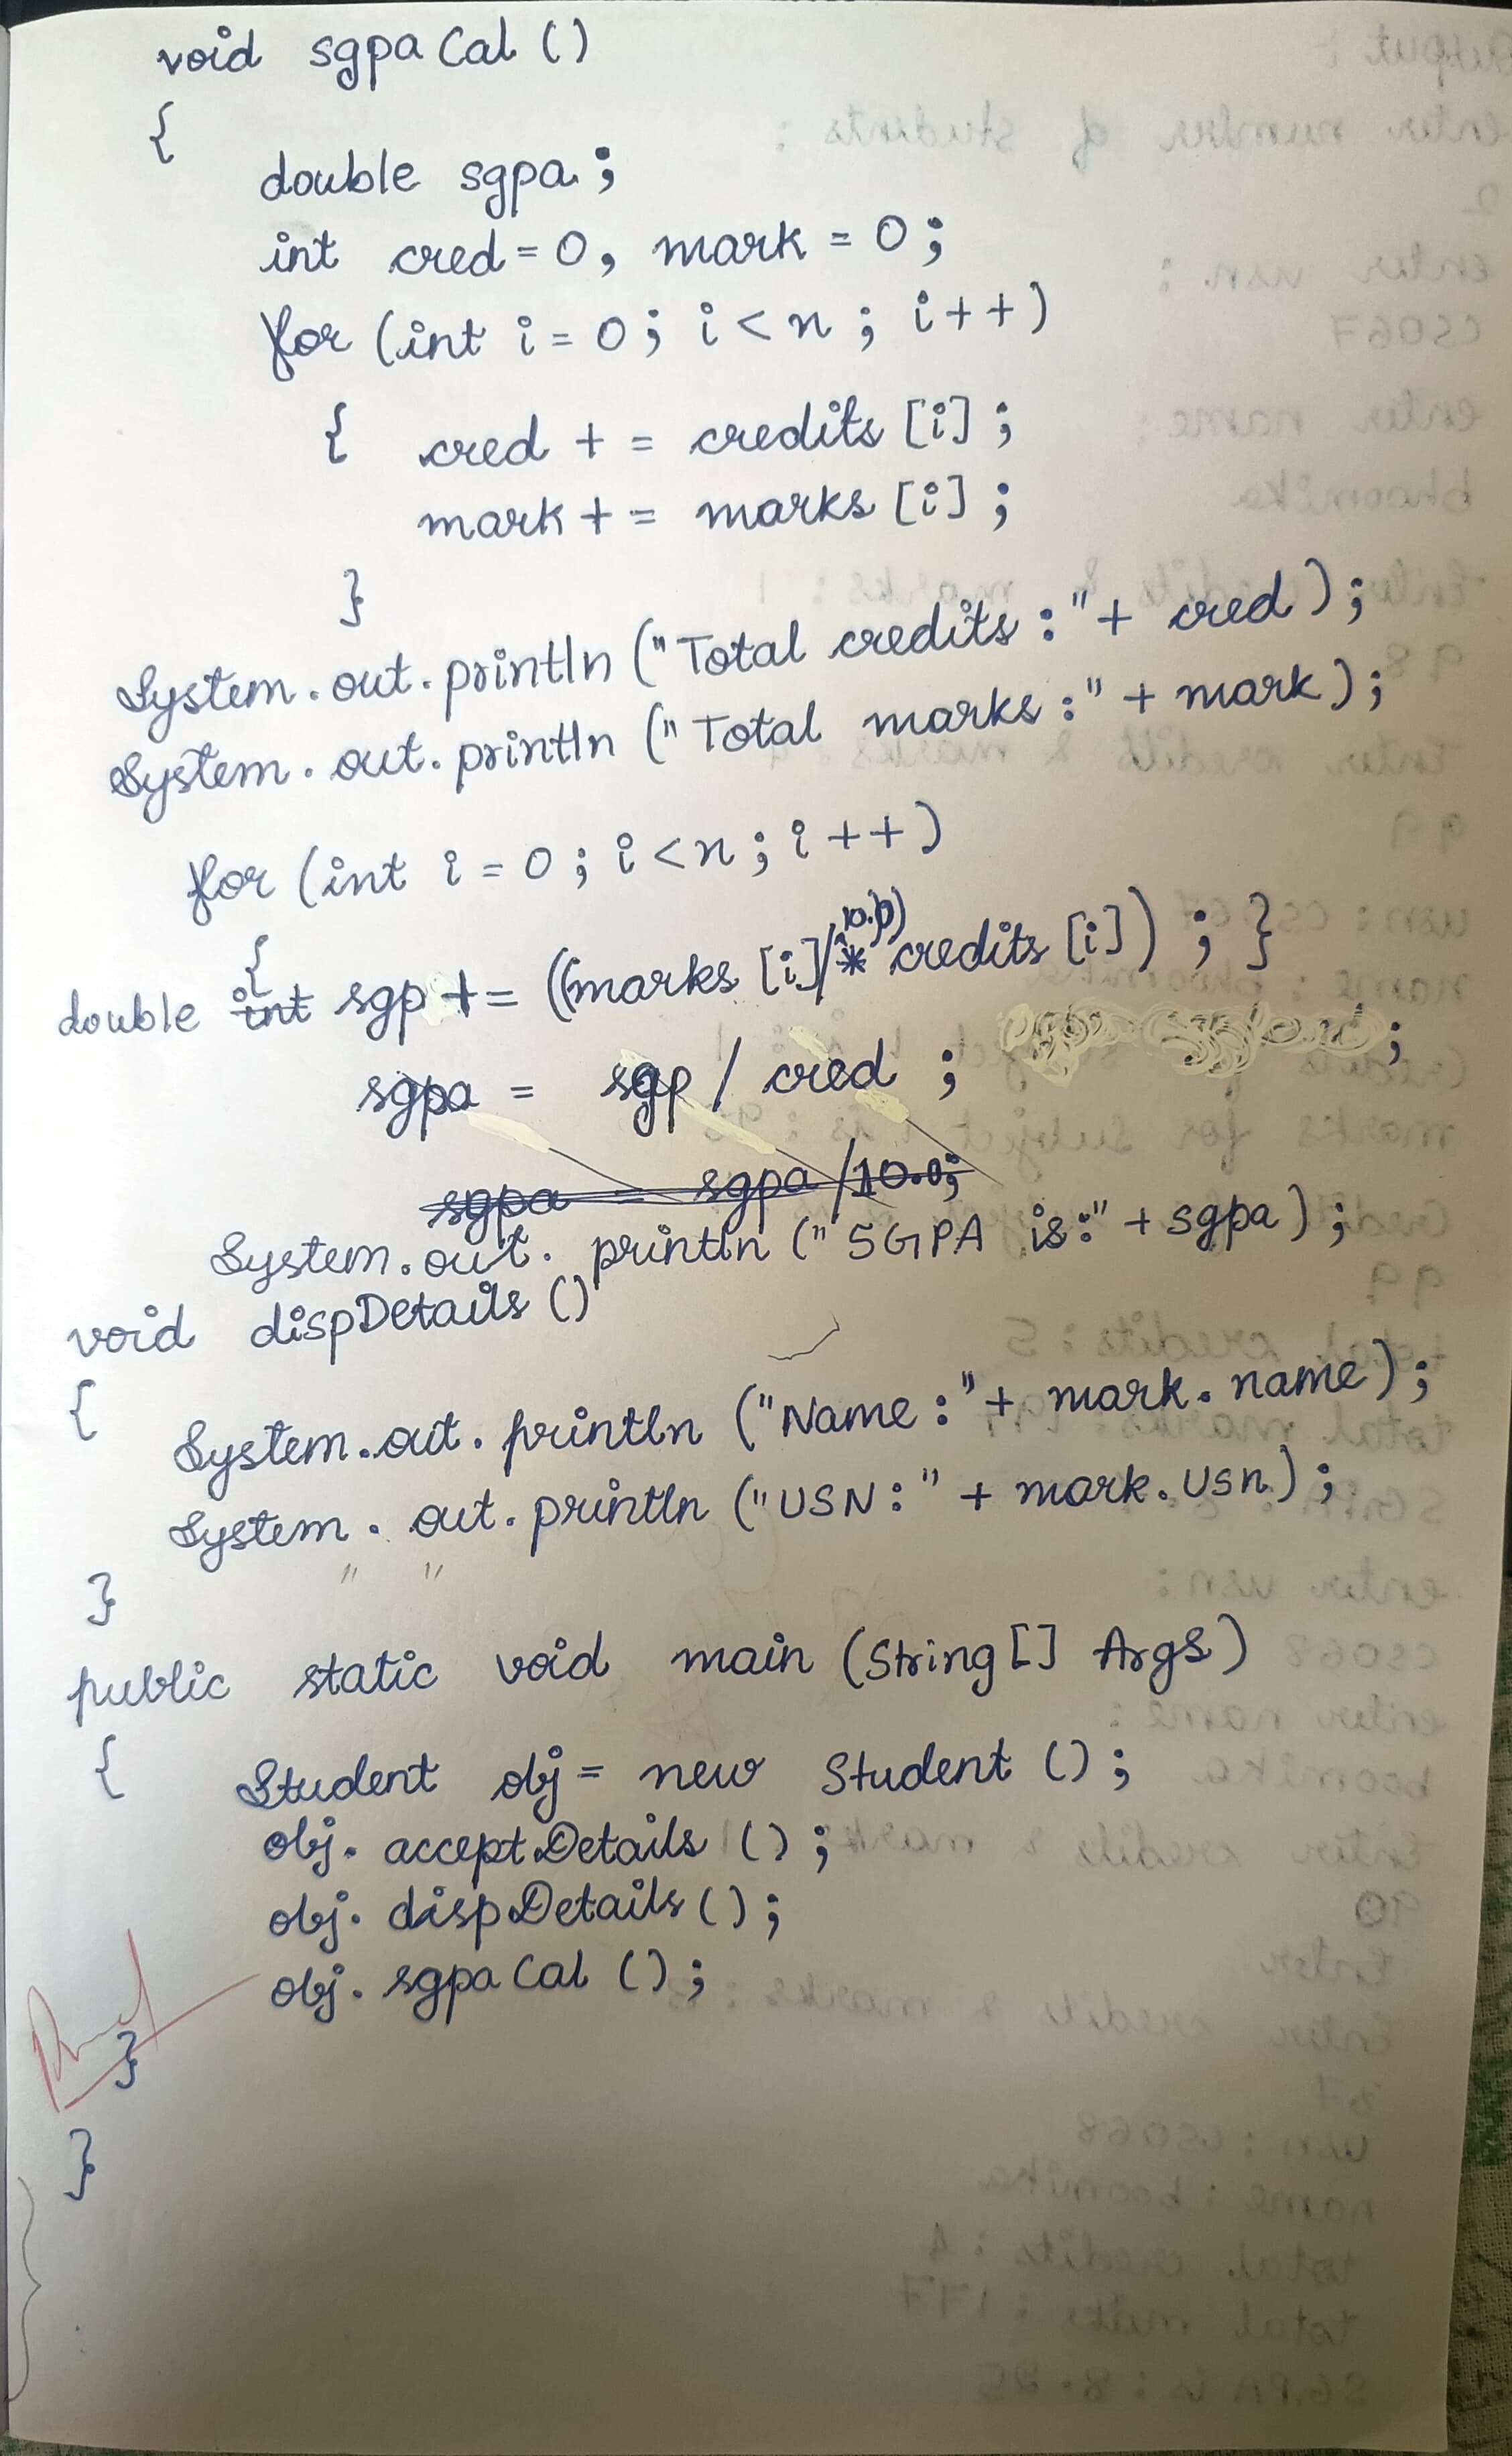 void sgpaCal ()
{
double sgpa ;
int cred = 0, mark = 0 ;
for (int i = 0 ; i < n ; i++)
{ cred += credits [i] ;
mark += marks [i] ;
}
System.out.println ("Total credits :" + cred) ;
System.out.println ("Total marks :" + mark) ;
for (int i = 0 ; i < n ; i++)
{
double int sgp += ((marks [i] / 10.0) * credits [i]) ; }
sgpa = sgp / cred ; ;
sgpa = sgpa / 10.0;
System.out.println ("SGPA is:" + sgpa) ;
void dispDetails ()
{
System.out.println ("Name :" + mark.name) ;
System.out.println ("USN : " + mark.usn) ;
" "
}
public static void main (String[] Args)
{ Student obj = new Student () ;
obj.acceptDetails () ;
obj.dispDetails () ;
obj.sgpaCal () ;
}
}